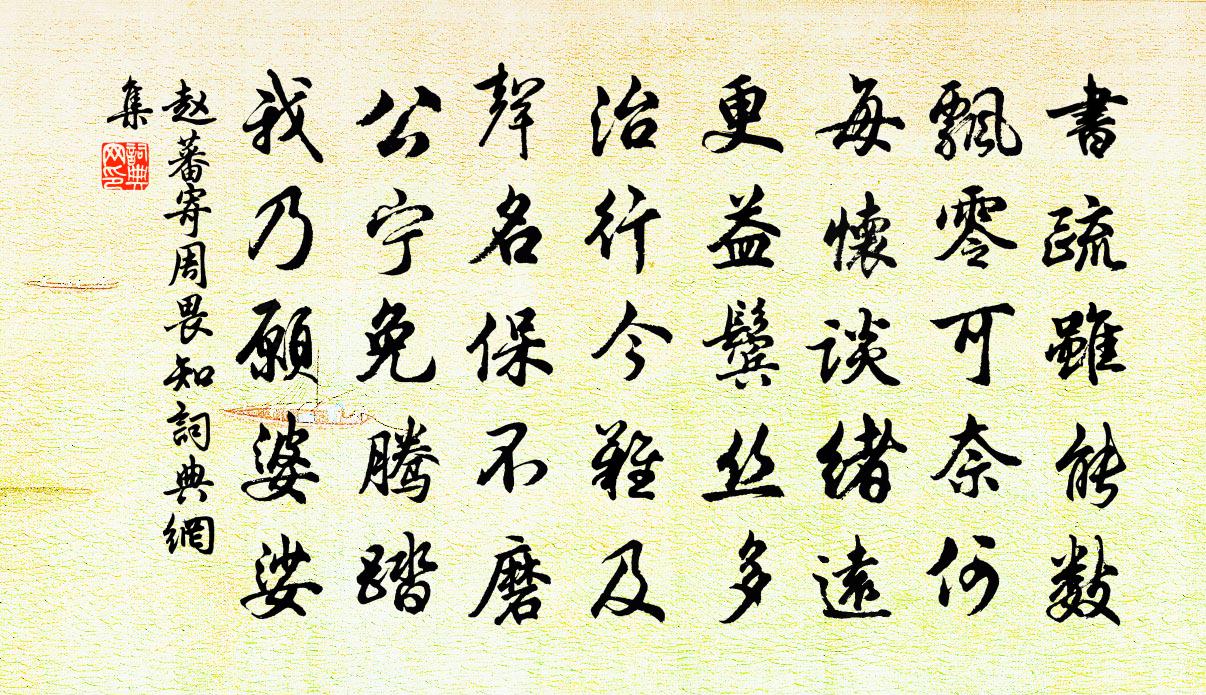 書疏雖能數
飄零可奈何
每懷談緒遠
更益鬓丝多
治行今難及
聲名保不磨
公宁免腾踏
我乃願婆娑
赵蕃寄周畏知詞典網
集
詞典
网印